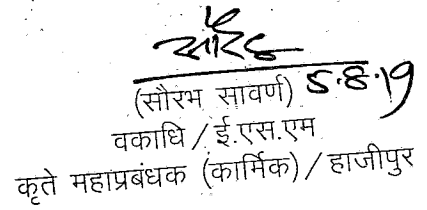 सौरभ
(सौरभ सावर्ण) 5.8.19
वकाधि / ई.एस.एम
कृते महाप्रबंधक (कार्मिक) / हाजीपुर